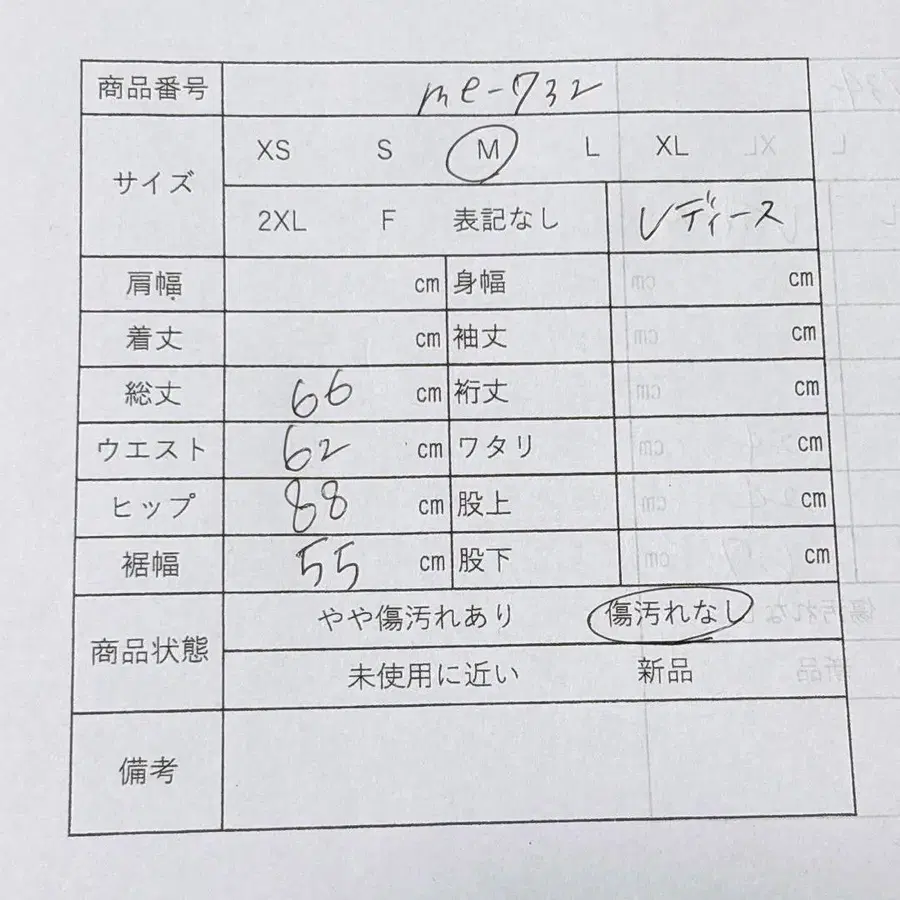 商品番号 me-732
サイズ XS S M L XL
2XL F 表記なし レディース
肩幅 cm 身幅 cm
着丈 cm 袖丈 cm
総丈 66 cm 裄丈 cm
ウエスト 62 cm ワタリ cm
ヒップ 88 cm 股上 cm
裾幅 55 cm 股下 cm
商品状態 やや傷汚れあり 傷汚れなし
未使用に近い 新品
備考